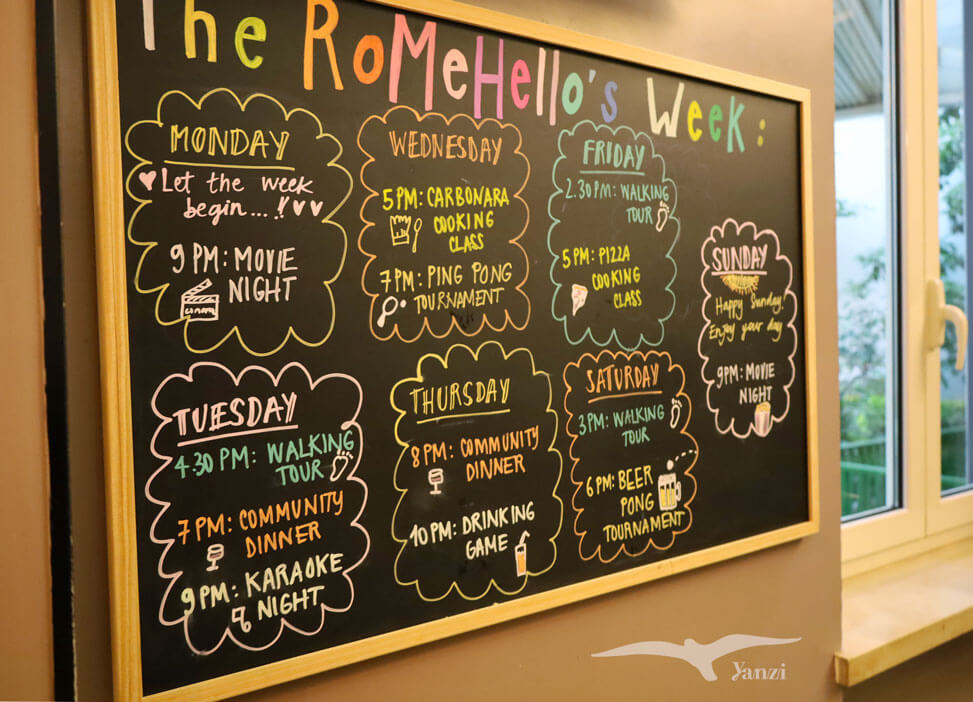 The RoMeHello's Week:
MONDAY
Let the week
begin...!!
9 PM: MOVIE
NIGHT
CINEMA
TUESDAY
4.30 PM: WALKING
TOUR
7 PM: COMMUNITY
DINNER
9 PM: KARAOKE
NIGHT
WEDNESDAY
5 PM: CARBONARA
COOKING
CLASS
7 PM: PING PONG
TOURNAMENT
THURSDAY
8 PM: COMMUNITY
DINNER
10 PM: DRINKING
GAME
FRIDAY
2.30 PM: WALKING
TOUR
5 PM: PIZZA
COOKING
CLASS
SATURDAY
3 PM: WALKING
TOUR
6 PM: BEER
PONG
TOURNAMENT
SUNDAY
Happy Sunday!
Enjoy your day
9PM: MOVIE
NIGHT
Yanzi